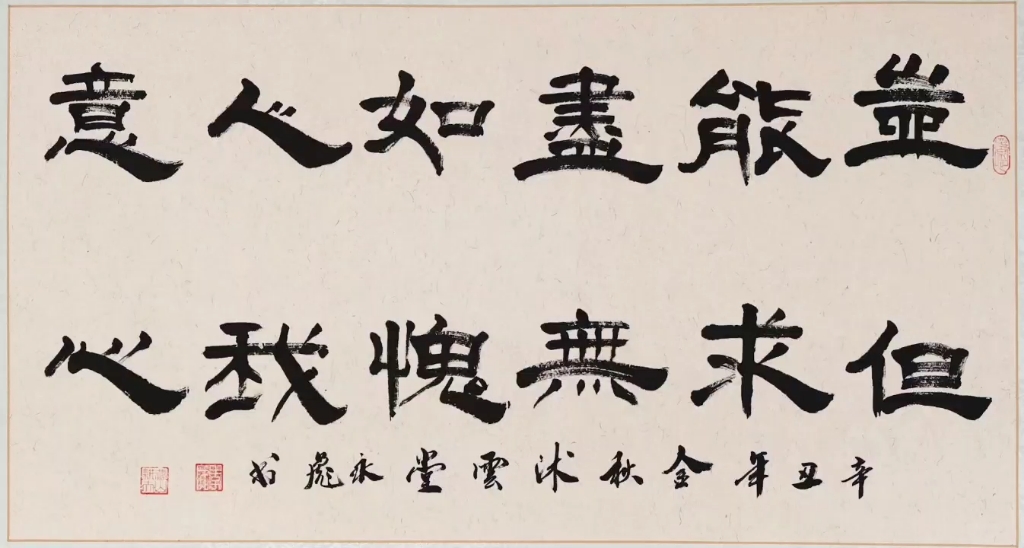 豈能盡如人意
但求無愧我心
辛丑年金秋沐雲堂永彪书